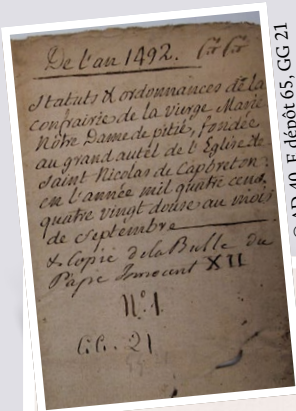 De l'an 1492.
Statuts & ordonnances de La
confrairie de la vierge Marie
Notre Dame de pitié, fondée
au grand autel de l'Eglise de
Saint Nicolas de Capbreton
en l'année mil quatre cens
quatre vingt douse au mois
de septembre
& copie de la Bulle du
Pape Innocent XII
N.º 1.
GG. 21
© AD 40, E dépôt 65, GG 21